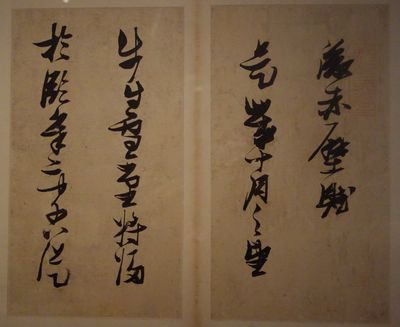 後赤壁賦
是歲十月之望
步自雪堂將歸
於臨皋二客從